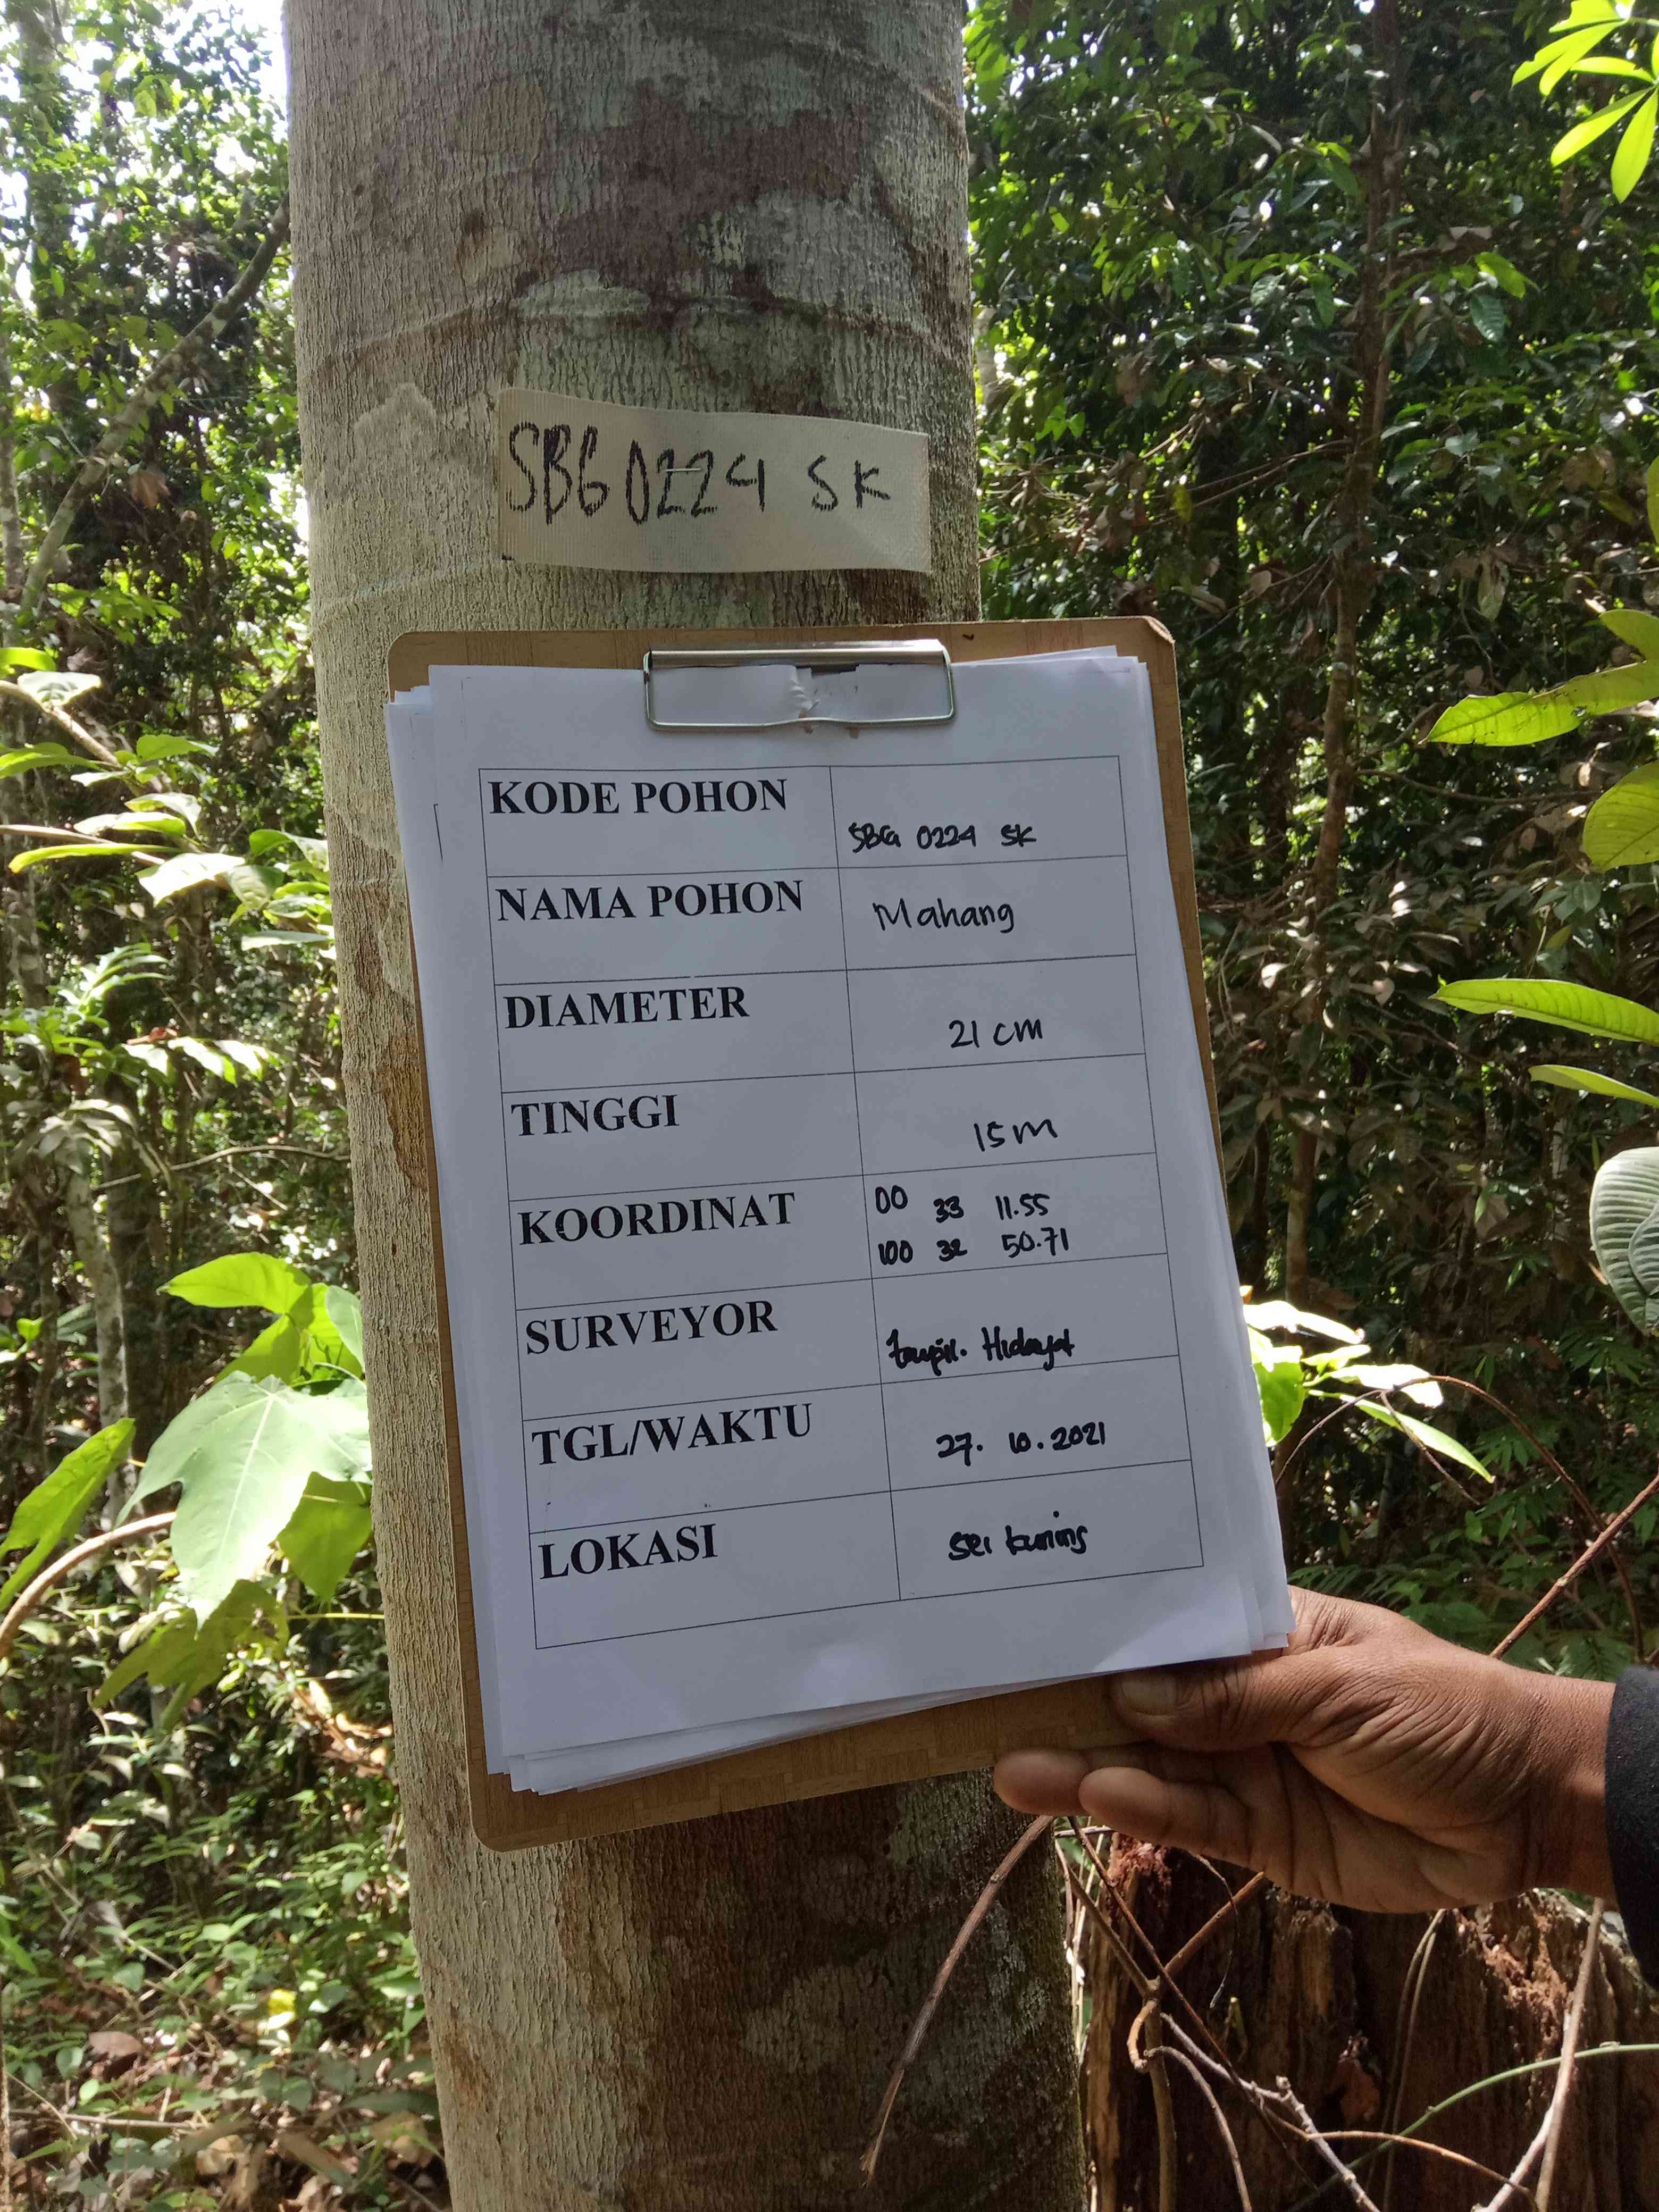 SBG 0224 SK
KODE POHON
SBG 0224 SK
NAMA POHON
Mahang
DIAMETER
21 cm
TINGGI
15 m
KOORDINAT
00 33 11.55
100 32 50.71
SURVEYOR
Hidayat
TGL/WAKTU
27. 10. 2021
LOKASI
sei kuning